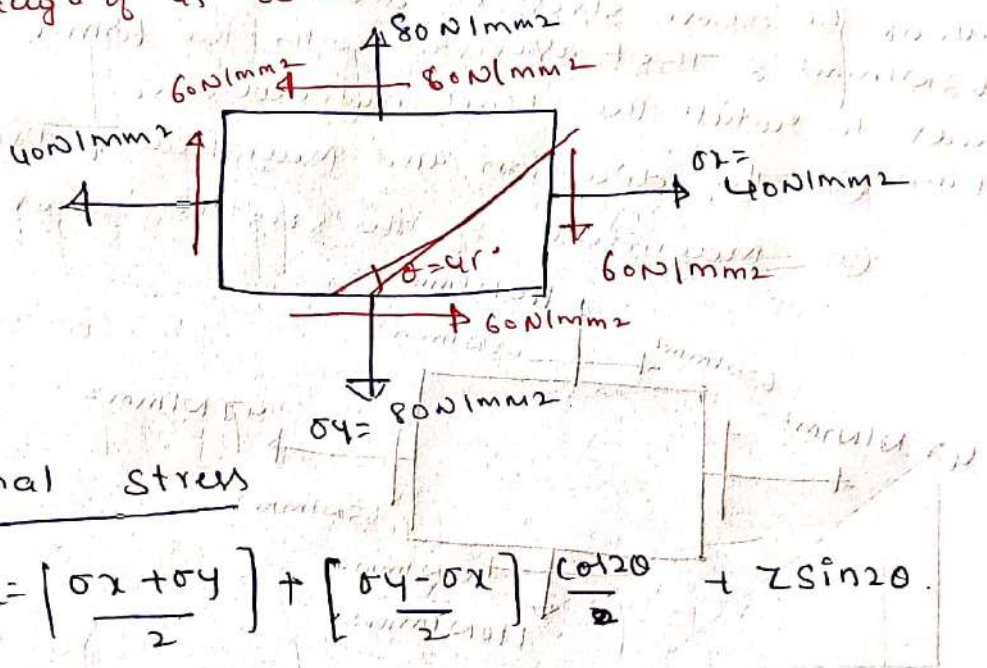 80 N/mm2
60N/mm2 80N/mm2
40N/mm2
σx=
40N/mm2
θ=45°
60N/mm2
60N/mm2
σy= 80N/mm2
nal stress
= [σx+σy/2] + [σy-σx/2] cos2θ/2 + τsin2θ.